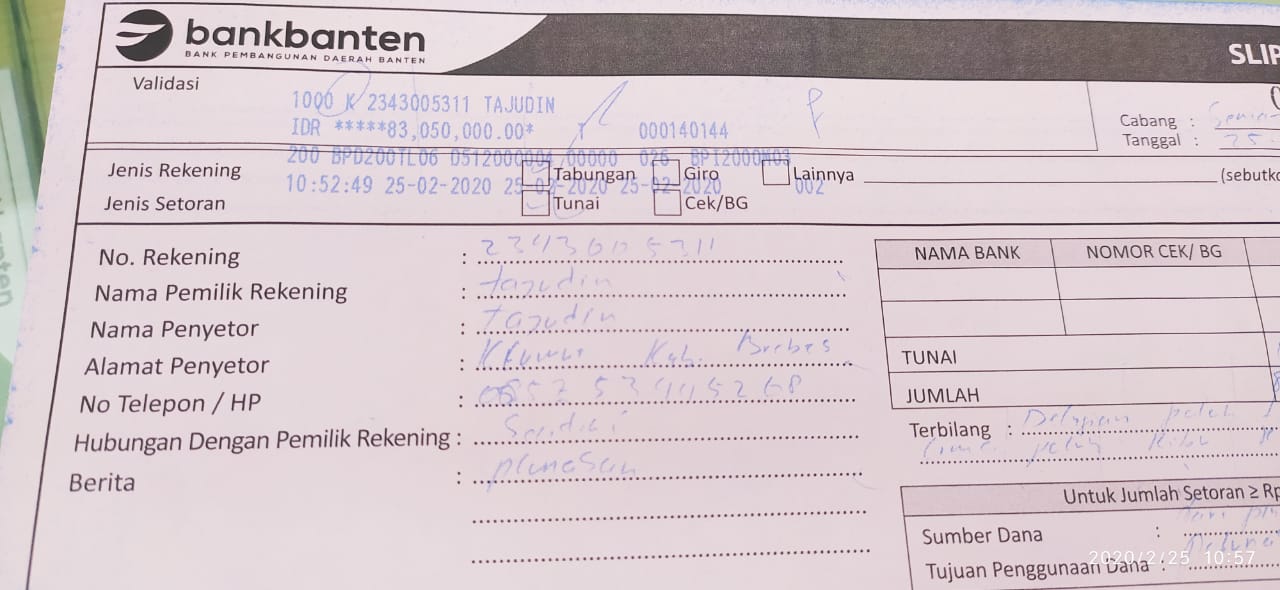 bankbanten
BANK PEMBANGUNAN DAERAH BANTEN
SLIP
Validasi
1000 K 2343005311 TAJUDIN
IDR *****83,050,000.00* T 000140144
200 BPD200TL06 0512000004 00000 026 BPI2000W03
10:52:49 25-02-2020 25-02-2020 25-02-2020 002
Cabang :
Tanggal : 25
Jenis Rekening Tabungan Giro Lainnya (sebutk
Jenis Setoran Tunai Cek/BG
No. Rekening : 2343005311
Nama Pemilik Rekening : tajudin
Nama Penyetor : tajudin
Alamat Penyetor : Kab. Brebes
No Telepon / HP :
Hubungan Dengan Pemilik Rekening : Sendiri
Berita : plunasan
NAMA BANK NOMOR CEK/ BG
TUNAI
JUMLAH
Terbilang : Delapan puluh
lima puluh Ribu
Untuk Jumlah Setoran ≥ Rp
Sumber Dana :
Tujuan Penggunaan Dana :
2020/2/25 10:57